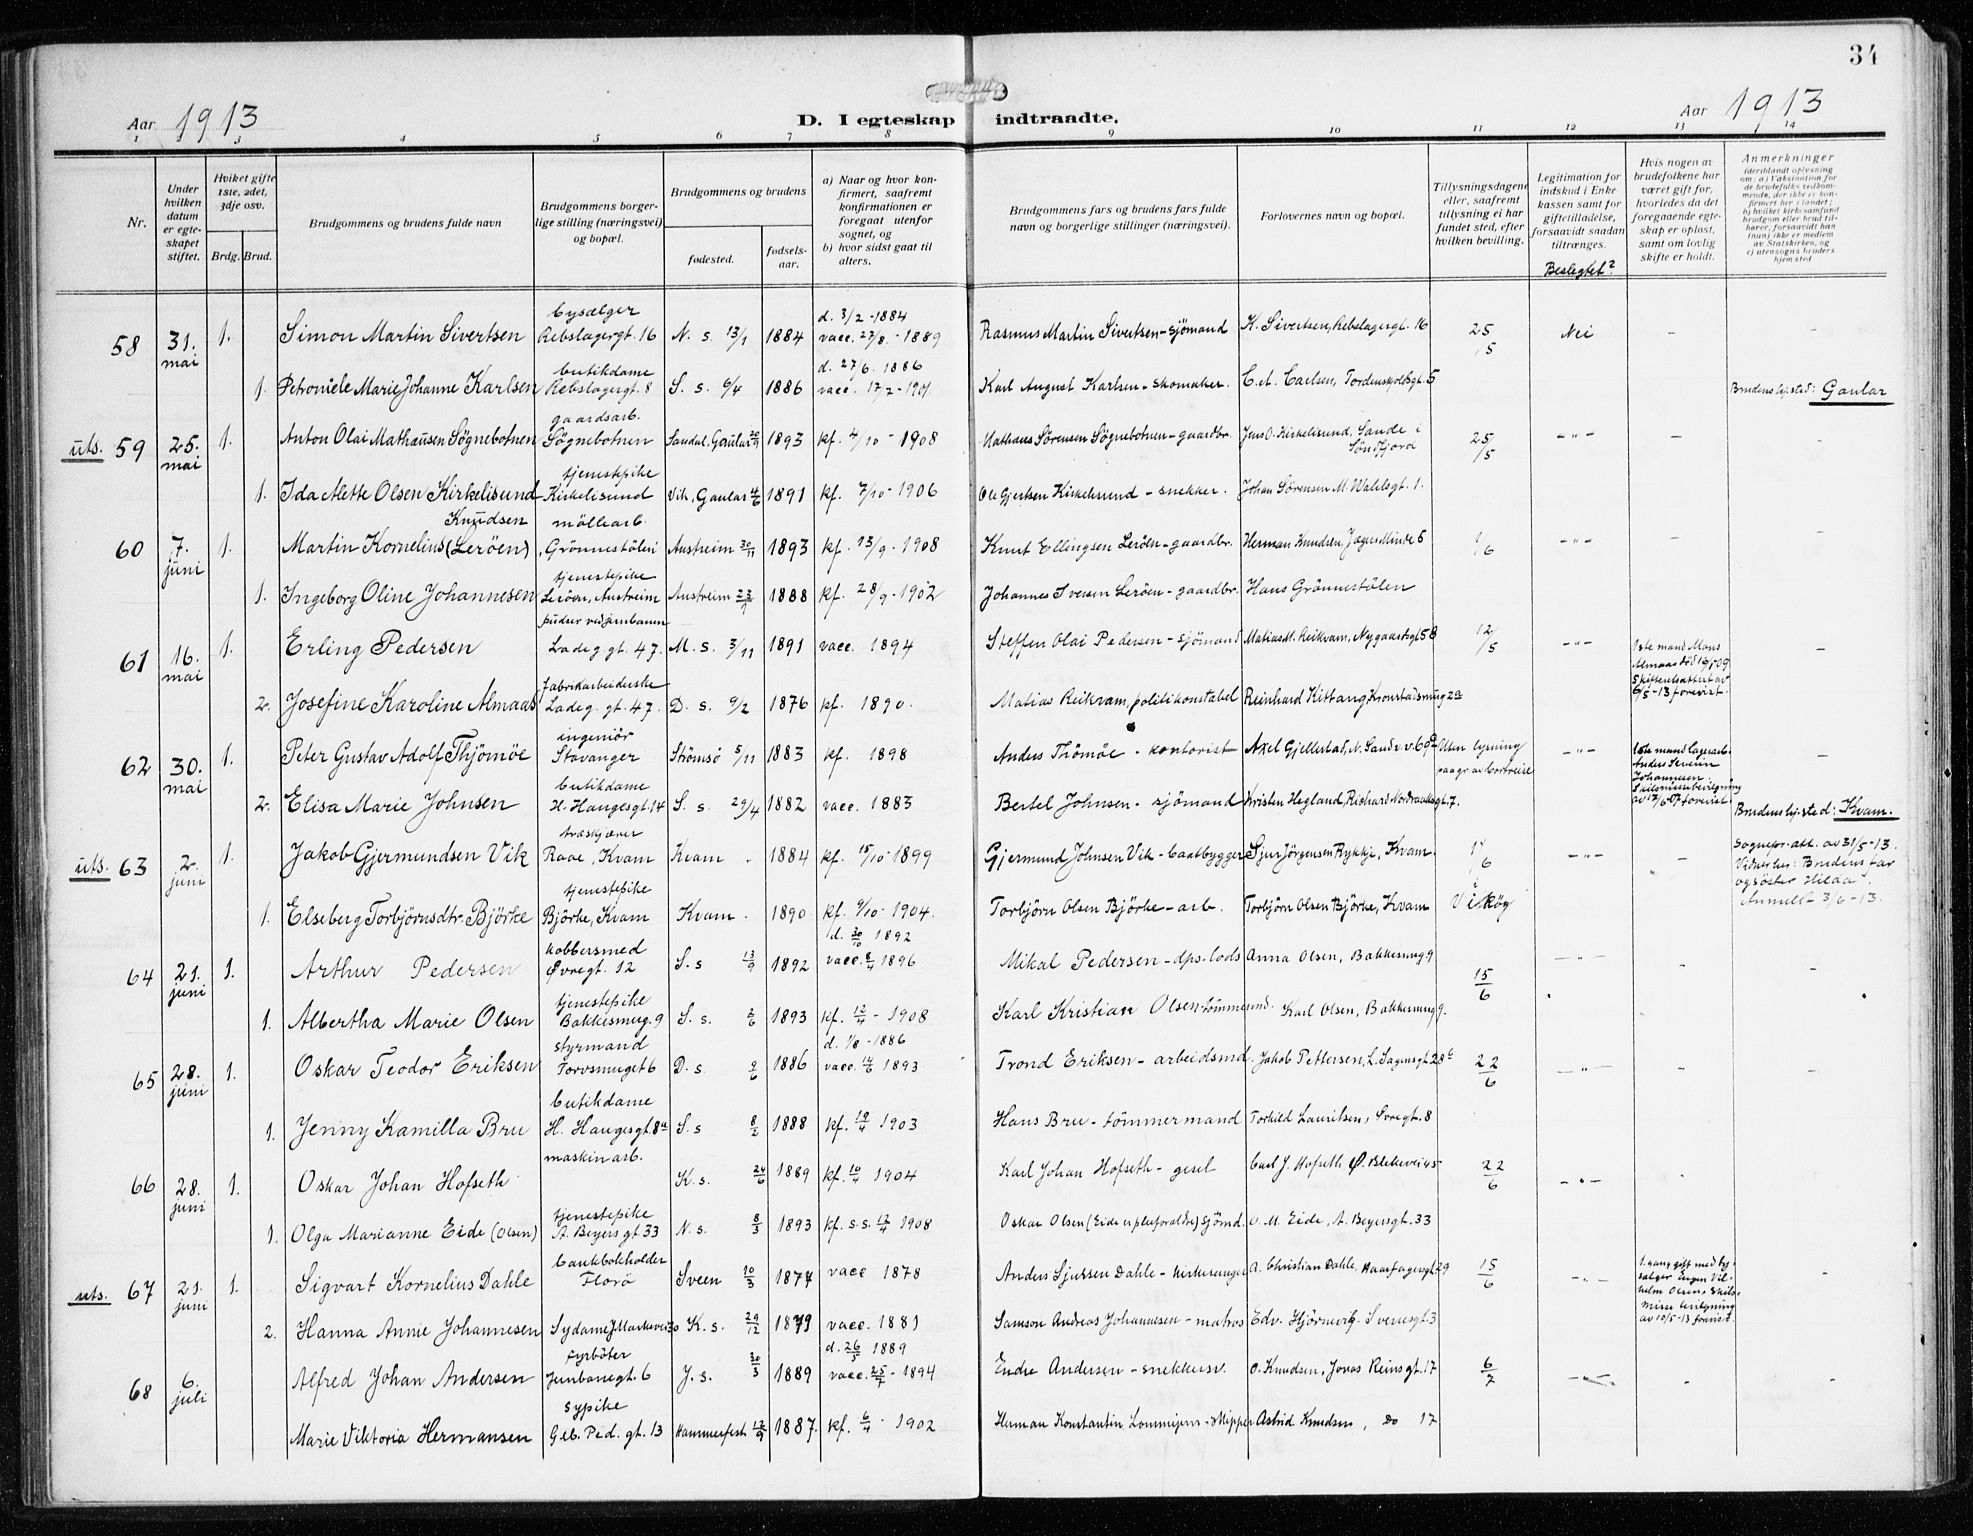 34
Aar 1913
D. I egteskap indtraadte.
Aar 1913
1 2 3 4 5 6 7 8 9 10 11 12 13 14
Nr.
Under hvilken datum er egteskapet stiftet.
Hvilket gifte 1ste, 2det, 3dje osv.
Brdg. Brud.
Brudgommens og brudens fulde navn
Brudgommens borgerlige stilling (næringsvei) og bopæl.
Brudgommens og brudens
fødested.
fødselsaar.
a) Naar og hvor konfirmert, saafremt konfirmationen er foregaat utenfor sognet, og
b) hvor sidst gaat til alters.
Brudgommens fars og brudens fars fulde navn og borgerlige stillinger (næringsvei).
Forlovernes navn og bopæl.
Tillysningsdagene eller, saafremt tillysning ei har fundet sted, efter hvilken bevilling.
Legitimation for indskud i Enkekassen samt for giftetilladelse, forsaavidt saadan tiltrænges.
Beslegtet?
Hvis nogen av brudefolkene har været gift før, hvorledes da det foregaaende egteskap er opløst, samt om lovlig skifte er holdt.
Anmerkninger (deriblandt oplysning om: a) Vaksination for de brudefolks vedkommende, der ikke er konfirmert her i landet; b) hvilket kirkesamfund brudgom eller brud tilhører, forsaavidt han (hun) ikke er medlem av Statskirken, og c) utensogns bruders hjemsted.
58 31. mai 1. Simon Martin Sivertsen bysælger Rebslagergt. 16 N. s. 13/1 1884 d. 3/2-1884 vacc. 27/8-1889 Rasmus Martin Sivertsen - sjömand K. Sivertsen, Rebslagergt. 16 25/5 Nei - -
1. Petronele Marie Johanne Karlsen butikdame Rebslagergt. 8 S. s. 6/4 1886 d. 27/6. 1886 vacc. 17/2-1901 Karl August Karlsen - skomaker. C. A. Carlsen, Tordenskoldsgt. 5 Brudens hj.sted: Gaular
uts. 59 25. mai 1. Anton Olai Mathausen Søgnebotnen gaardsarb. Søgnebotnen Sandal, Gaular 20/9 1893 kf. 4/10-1908 Mathaus Sørensen Søgnebotnen - gaardbr. Jens O. Kirkelisund, Sande i Söndfjord 25/5 -"- - -
1. Ida Alette Olsen Kirkelisund tjenestepike Kirkelisund Vik, Gaular 4/6 1891 kf. 7/10-1906 Ole Gjertsen Kirkelisund - snekker. Johan Sørensen M. Wahlsgt. 1.
60 7. juni 1. Martin Kornelius Knudsen (Lerøen) möllearb. Grönnestölen Austreim 30/11 1893 kf. 13/9-1908 Knut Ellingsen Lerøen - gaardbr. Herman Knudsen, Jægers Minde 5 1/6 -"- - -
1. Ingeborg Oline Johannesen tjenestepike Lerøen, Austreim Austreim 23/9 1888 kf. 28/9-1902 Johannes Iversen Lerøen - gaardbr. Hans Grönnestölen
61 16. mai 1. Erling Pedersen pudser ved jernbanen Ladeg. gt. 47. M. s. 3/11 1891 vacc. 1894 Steffen Olai Pedersen - sjömand Matias M. Reikvam, Nygaardsgt 58 12/5 -"- 1ste mand Mons Almaas död 19/1-09 Skifterettsattest av 6/5-13 forevist. -
2. Josefine Karoline Almaas fabrikarbeiderske Ladeg. gt. 47. D. s. 9/2 1876 kf. 1890. Matias Reikvam, politikonstabel Reinhard Kittang, Kronstadsmug 2a
62 30. mai 1. Peter Gustav Adolf Thjömöe ingeniör Stavanger Strömsö 5/11 1883 kf. 1898 Anders Thömöe - kontorist Axel Gjellestad, N. Sandv. v. 69a Uten lysning paa gr. av bortreise -"- 1ste mand lagerarb. Anders Severin Johannesen. Skilsmissebevilgning av 12/6 07 forevist. -
2. Elisa Marie Johnsen butikdame H. Haugesgt. 14 S. s. 29/4 1882 vacc. 1883 Bertel Johnsen - sjömand Kristen Hegland, Richard Nordraaksgt. 7.
uts. 63 2. juni 1. Jakob Gjermundsen Vik træskjærer Raae, Kvam Kvam - 1884 kf. 15/10-1899 Gjermund Johnsen Vik - baatbygger Sjur Jörgensen Rykkje, Kvam. 1/6 i Vikøy -"- Brudens hj.sted: Kvam. Sognepr. att. av 31/5-13. Vidnerher: Brudens far og søster Hilda. Anmeldt 3/6-13.
1. Elseberg Torbjörnsdtr. Björke tjenestepike Björke, Kvam Kvam - 1890 kf. 9/10-1904. Torbjörn Olsen Björke - arb. Torbjörn Olsen Björke, Kvam
64 21. juni 1. Arthur Pedersen kobbersmed Øvregt. 12 S. s 13/9 1892 d. 30/10 1892 vacc. 8/4 1896 Mikal Pedersen - dps.lods Anna Olsen, Bakkesmug. 9 15/6 -"- - -
1. Albertha Marie Olsen tjenestepike Bakkesmug. 9 S. s. 2/6 1893 kf. 12/4-1908 Karl Kristian Olsen - tömmermd. Karl Olsen, Bakkesmug 9.
65 28. juni 1. Oskar Teodor Eriksen styrmand Torvsmuget 6 D. s. 9/6 1886 d. 1/8-1886 vacc. 14/6 1893 Trond Eriksen - arbeidsmd. Jakob Pettersen, L. Sagensgt 28b 22/6 -"- - -
1. Jenny Kamilla Bru butikdame H. Haugesgt. 8a S. s 8/2 1888 kf. 19/4 1903 Hans Bru - tömmermand Torkild Lauritsen, Øvregt. 8
66 28. juni 1. Oskar Johan Hofseth maskinarb. K. s. 24/6 1889 kf. 10/4 1904 Karl Johan Hofseth - gesel Carl J. Hofseth, Ø. Blekevei 45 22/6 -"- - -
1. Olga Marianne Eide (Olsen) tjenestepike A. Beyers gt 33 N. s. 8/3 1893 kf. s. s. 12/4 1908 Oskar Olsen (Eide er pleieforældre) sjömd. O. M. Eide, A. Beyersgt. 33
uts. 67 21. juni 1. Sigvart Kornelius Dahle bankbokholder Florö Sveen 10/3 1874 vacc 1878 Anders Sjursen Dahle - kirkesanger A. Christian Dahle, Haarfagersgt. 29 15/6 -"- 1. gang gift med bysælger Eugen Vilhelm Olsen, skilsmisse bevilgning av 10/5-13 forevist.
2. Hanna Annie Johannesen Sydame, J. Markevei 30 K. s. 29/12 1879 vacc. 1881 Samson Andreas Johannesen - matros Edv. Hjörnevig, Sverresgt. 3
68 6. juli Alfred Johan Andersen Fyrböter Jernbanegt. 6 J. s. 30/3 1889 d. 26/5 1889 vacc. 25/7-1894 Endre Andersen - snekkersv. O. Knudsen, Jonas Reinsgt. 17 6/7 -"- - -
Marie Viktoria Hermansen sypike Geb. Ped. gt. 13 Hammerfest 12/9 1887. kf. 6/4-1902 Herman Konstantin Lommigens - skipper Astrid Knudsen, do 17